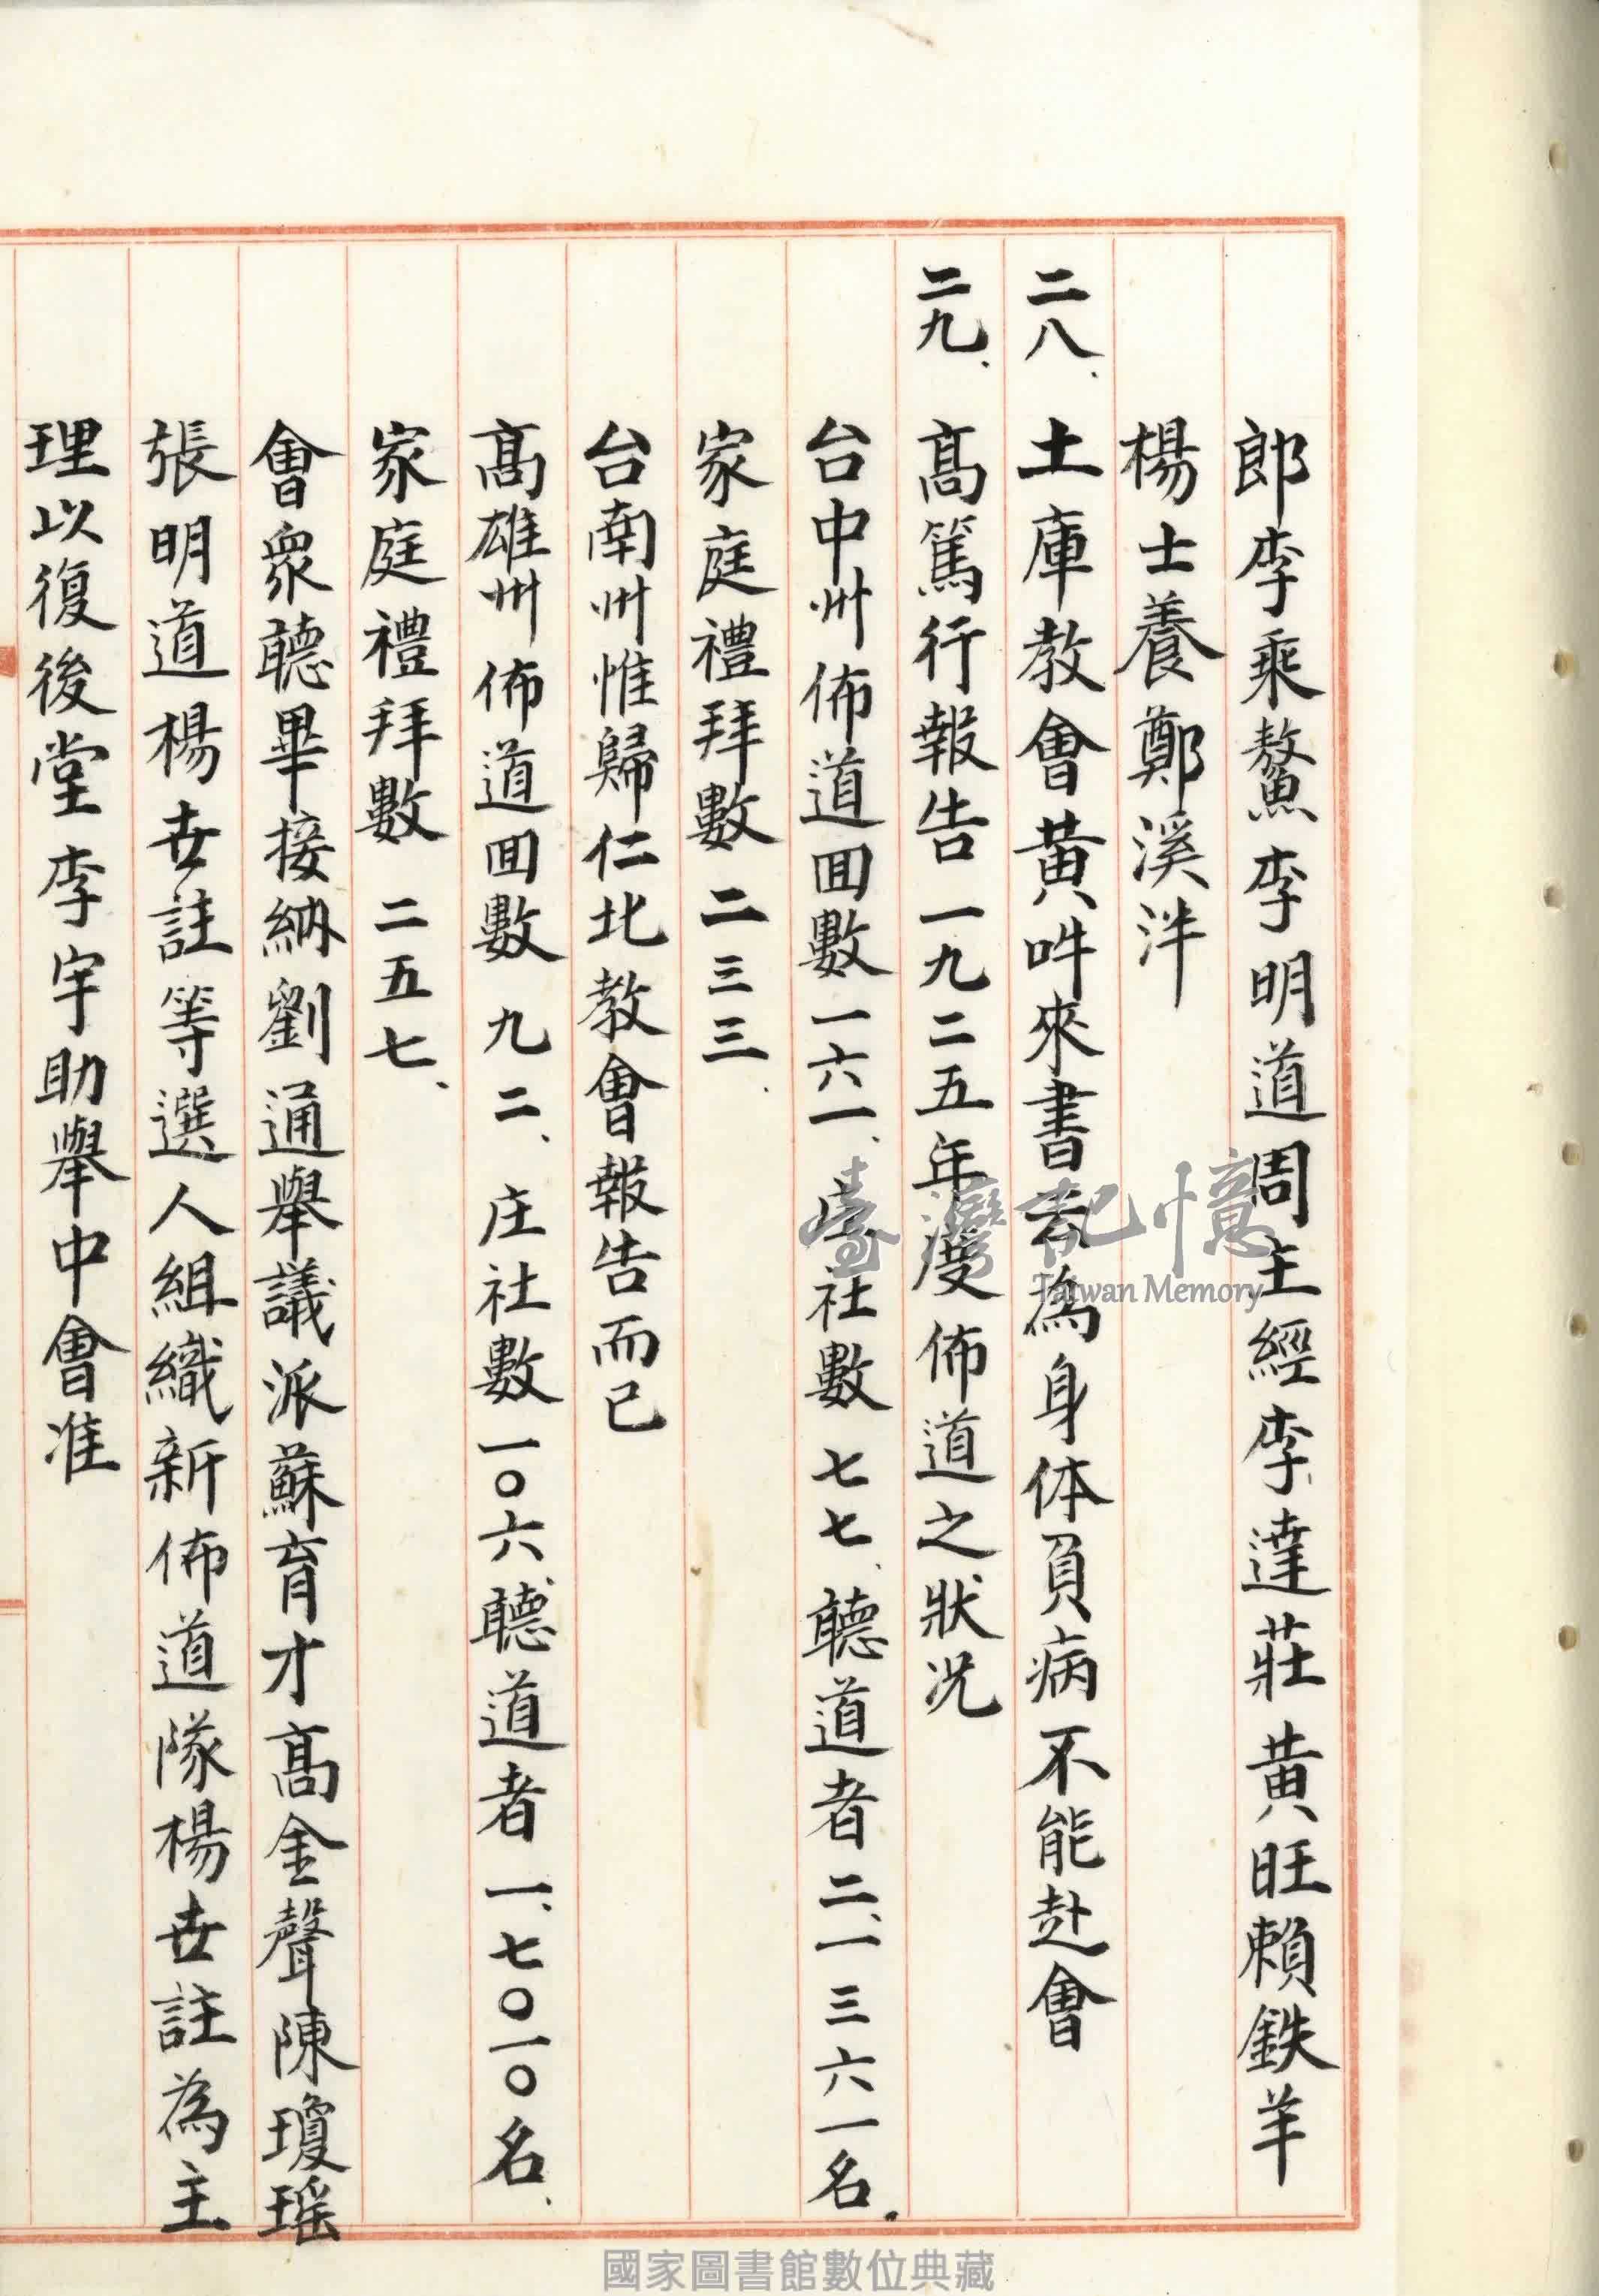 郎李乘鰲李明道周主經李達莊黃旺賴鉄羊
楊士養鄭溪泮
二八、土庫教會黃吽來書云為身体負病不能赴會
二九、高篤行報告一九二五年度佈道之狀况
台中州佈道囬數一六一、庄社數七七、聽道者二、一三六一名.
家庭禮拜數二三三.
台南州惟歸仁北教會報告而已
高雄州佈道囬數九二、庄社數一〇六、聽道者一、七〇一〇名、
家庭禮拜數二五七、
會衆聽畢接納劉通舉議派蘇育才高金聲陳瓊瑶
張明道楊世註等選人組織新佈道隊楊世註為主
理以復後堂李宇助舉中會准
臺灣記憶
Taiwan Memory
國家圖書館數位典藏